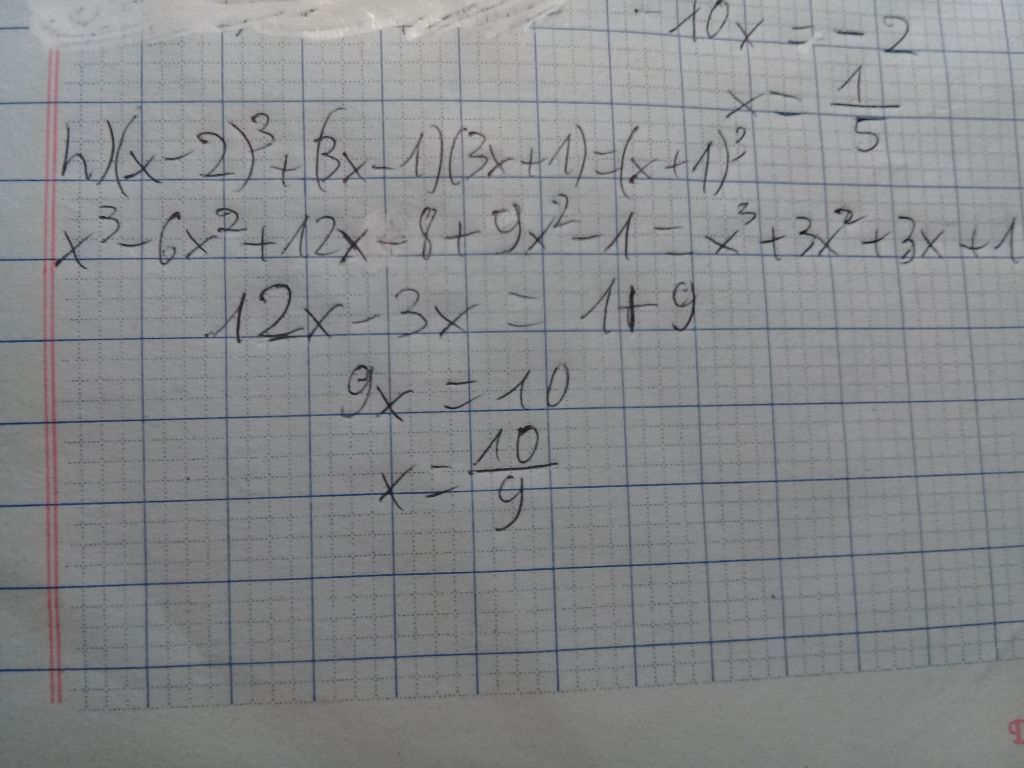 -10x = -2
x = 1/5
h) (x-2)³ + (3x-1)(3x+1) = (x+1)³
x³ - 6x² + 12x - 8 + 9x² - 1 = x³ + 3x² + 3x + 1
12x - 3x = 1 + 9
9x = 10
x = 10/9